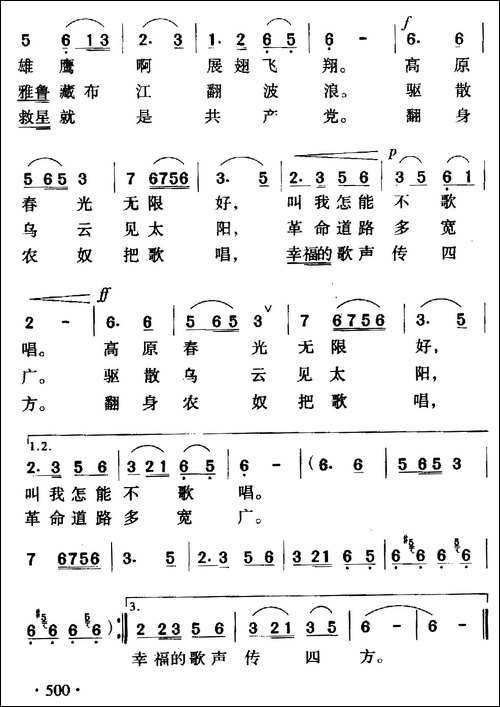 f
5 6 1 3 | 2. 3 | 1. 2 6 5 | 6 - | 6. 6
雄鹰啊展翅飞翔。高原
雅鲁藏布江翻波浪。驱散
救星就是共产党。翻身
p
5 6 5 3 | 7 6756 | 3. 5 | 2. 3 5 6 | 3 5 6 1
春光无限好,叫我怎能不歌
乌云见太阳,革命道路多宽
农奴把歌唱,幸福的歌声传四
ff
2 - | 6. 6 | 5 6 5 3 ∨ | 7 6756 | 3. 5
唱。高原春光无限好,
广。驱散乌云见太阳,
方。翻身农奴把歌唱,
1.2.
2. 3 5 6 | 3 2 1 6 5 | 6 - | (6. 6 | 5 6 5 3
叫我怎能不歌唱。
革命道路多宽广。
7 6756 | 3. 5 | 2. 3 5 6 | 3 2 1 6 5 | 6 6 6 6
3.
6 6 6 6) :‖ 2 2 3 5 6 | 3 2 1 3 5 | 6 - | 6 - ‖
幸福的歌声传四方。
· 500 ·